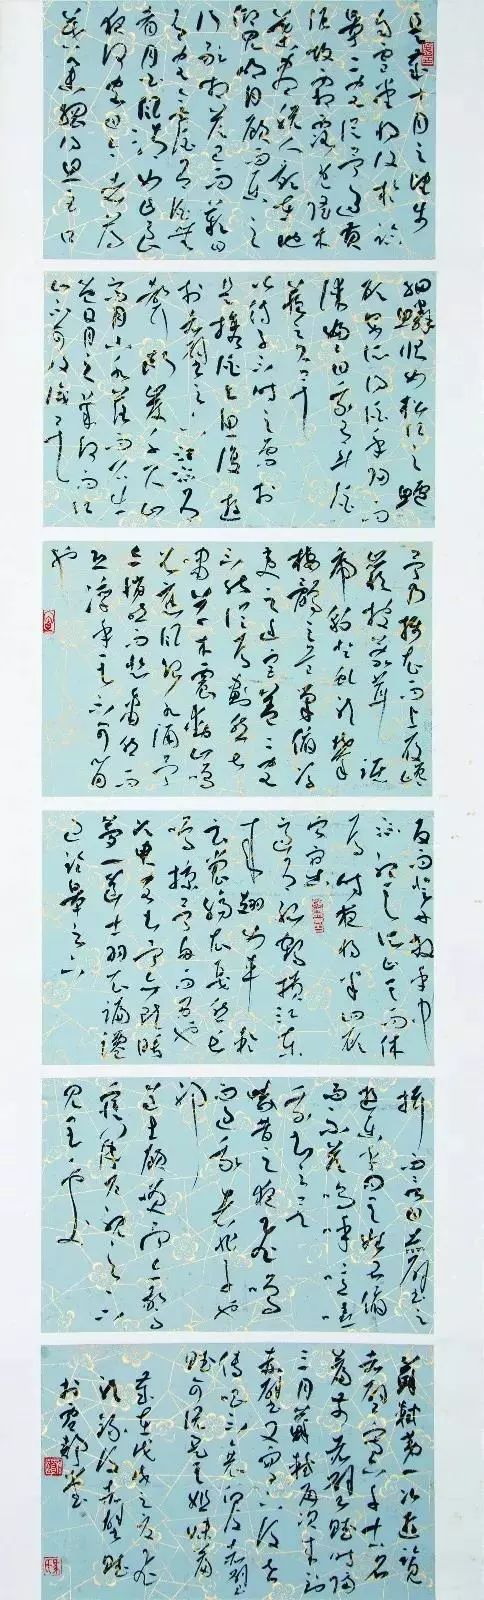 是歲十月之望步
自雪堂將歸於臨
皋二客從予過黃
泥坂霜露既降木
葉盡脫人影在地
仰見明月顧而樂之
行歌相答已而歎曰
有客無酒有酒無
肴月白風清如此良
夜何客曰今者薄
暮舉網得魚巨口
細鱗狀如松江之鱸
顧安所得酒乎歸而
謀諸婦婦曰我有斗酒
藏之久矣
以待子不時之需於
是攜酒與魚復遊
於赤壁之下江流有
聲斷岸千尺山
高月小水落而石出
曾日月之幾何而江
山不可復識矣
予乃攝衣而上履巉
巖披蒙茸踞
虎豹登虬龍攀
棲鶻之危巢俯馮
夷之幽宮蓋二客
不能從焉劃然長
嘯草木震動山鳴
谷應風起水湧予
亦悄然而悲肅然而
恐凜乎其不可留
也
反而登舟放乎中
流聽其所止而休
焉時夜將半四顧
寂寥
適有孤鶴橫江東
來翅如車輪
玄裳縞衣戛然長
鳴掠予舟而西也
須臾客去予亦就睡
夢一道士羽衣蹁躚
過臨皋之下
揖予而言曰赤壁之
遊樂乎問其姓名俯
而不答嗚呼噫嘻
我知之矣
疇昔之夜飛鳴
而過我者非子也
耶
道士顧笑予亦驚
寤開戶視之不
見其處
蘇軾第一次遊覽
赤壁寫下千古名
篇前赤壁賦時隔
三月蘇軾再次來到
赤壁又寫下後世
傳唱不衰的後赤壁
賦可說是姐妹篇
歲在戊戌之夏
錄後赤壁賦